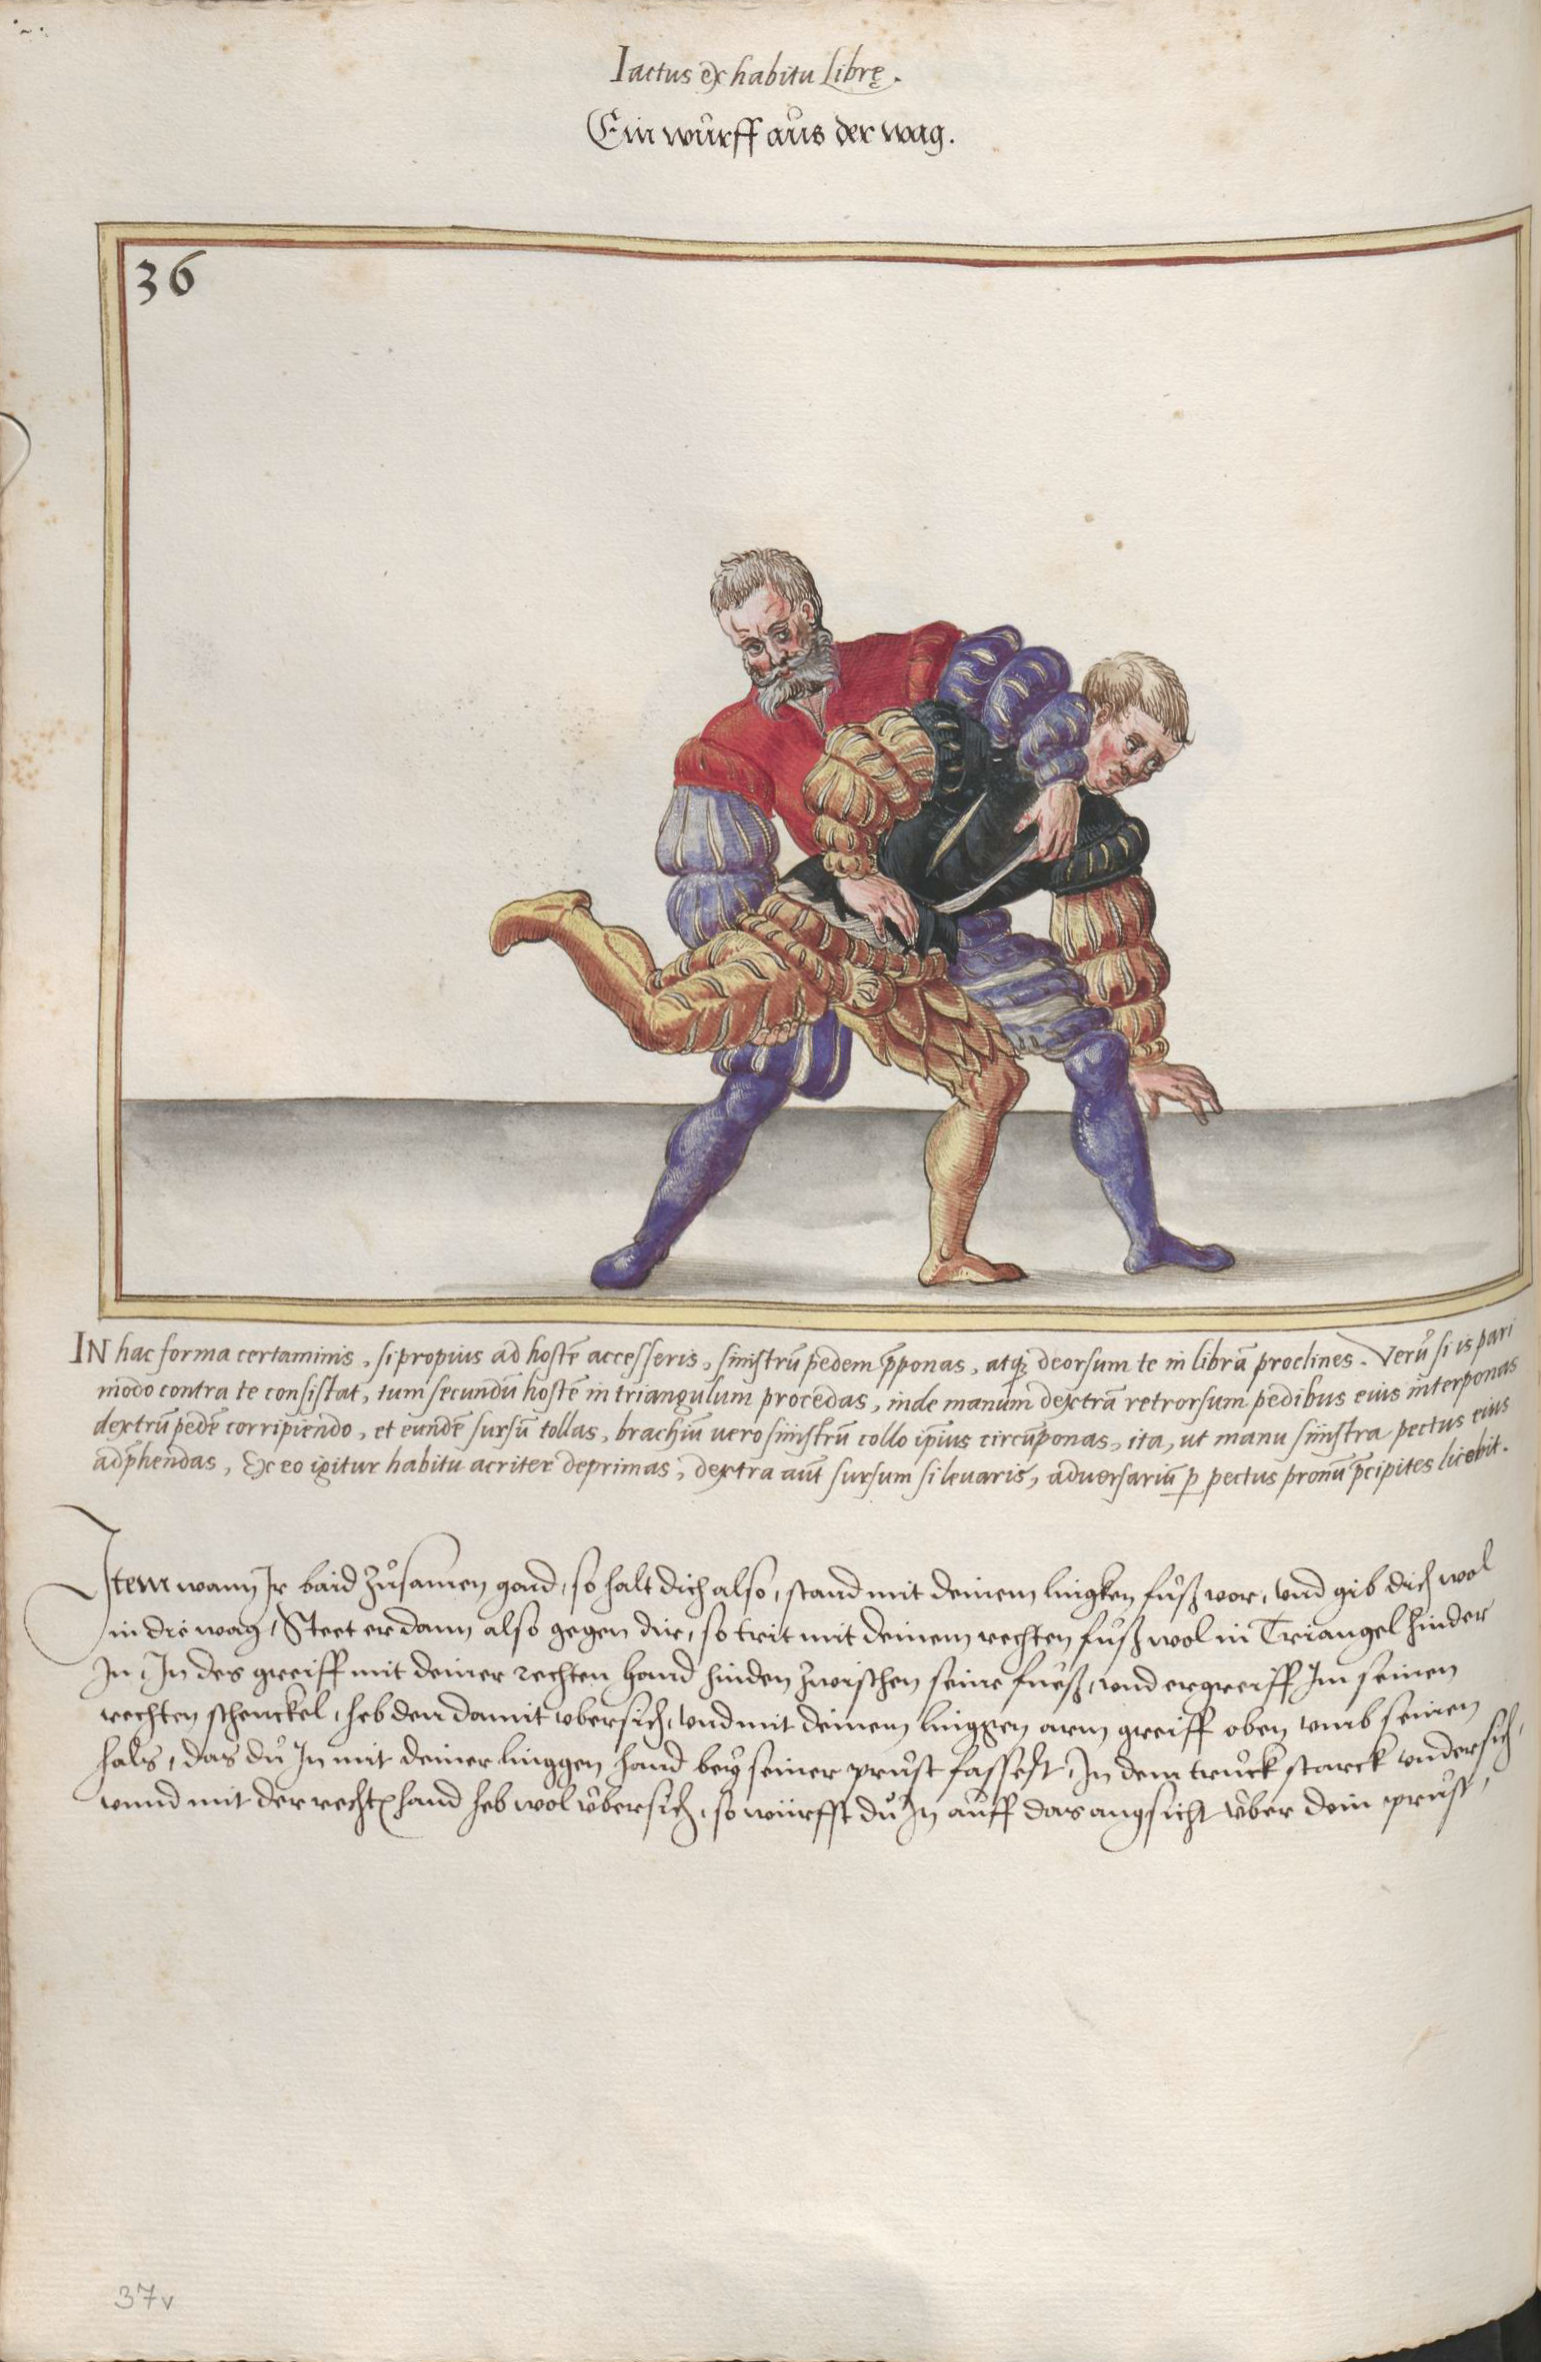 Iactus ex habitu Librę.
Ein wůrff aůs der wag.
36
IN hac forma certaminis, si propius ad hostẽ accesseris, sinistrũ pedem p̃ponas, atqꝫ deorsum te in librã proclines. Verũ si is pari
modo contra te consistat, tum secundũ hostẽ in triangulum procedas, inde manum dextrã retrorsum pedibus eius interponas
dextrũ pedẽ corripiendo, et eundẽ sursũ tollas, brachiũ uero sinistrũ collo ip̃ius circũponas, ita, ut manu sinistra pectus eius
adp̃hendas, Ex eo igitur habitu acriter deprimas, dextra aũt sursum si leuaris, aduersariũ ꝑ pectus pronũ p̃cipites licebit.
Item wann Ir baid zůsamen gand, so halt dich also, stand mit deinem lingken fůß vor, vnd gib dich wol
in die wag, Steet er dann also gegen dir, so trit mit deinem rechten fůß wol in Triangel hinder
In, In des greiff mit deiner rechten hand hinden zwischen seine fueß, vnd ergreiff Im seinen
rechten schenckel, heb den damit vbersich, vnd mit deinem linggen arm greiff oben vmb seinen
hals, das dů In mit deiner linggen hand bey seiner průst fassest, In dem trůck starck vndersich,
vnnd mit der rechtn hand heb wol v̊bersich, so würffst dů In aůff das angsicht v̊ber dein průst,
37v